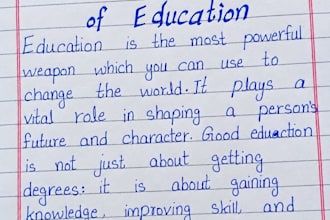 of Education
Education is the most powerful
weapon which you can use to
change the world. It plays a
vital role in shaping a person's
future and character. Good eduction
is not just about getting
degrees: it is about gaining
knowledge, improving skill, and